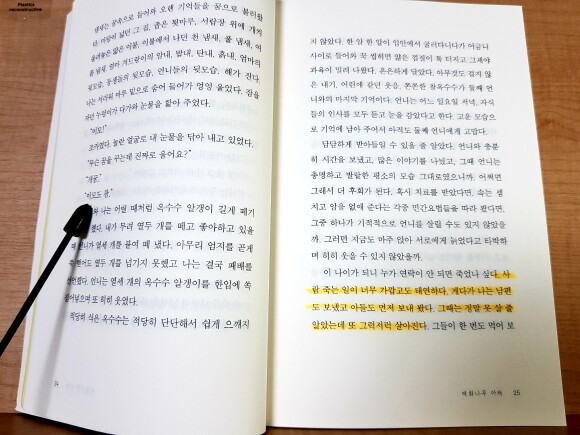 Plastics
냄새는 꿈속으로 들어와 오랜 기억들을 꿈으로 불러왔
다. 마당이 넓던 그 집, 좁은 툇마루, 서랍장 위에 개켜
올려놓은 얇은 이불, 이불에서 나던 찬 냄새, 풀 냄새, 여
름 냄새, 엄마 겨드랑이의 암내, 밥내, 단내, 흙내, 엄마의
뒷모습, 동생들의 뒷모습, 언니들의 뒷모습. 해가 진다.
나는 서러워 마루 밑으로 숨어 들어가 엉엉 울었다. 잠을
자던 누렁이가 다가와 눈물을 핥아 주었다.
"이모!"
조카였다. 놀란 얼굴로 내 눈물을 닦아 내고 있었다.
"무슨 꿈을 꾸는데 진짜로 울어요?"
"개꿈."
"이모도 참."
나는 어릴 때처럼 옥수수 알갱이 길게 떼기
했다. 내가 무려 열두 개를 떼고 좋아하고 있을
때 언니가 열세 개를 뜯어 떼 냈다. 아무리 엄지를 곧게
뻗어도 열두 개를 넘기지 못했고 나는 결국 패배를
선언했다. 언니는 열세 개의 옥수수 알갱이를 한입에 쏙
집어넣으며 또 히히 웃었다.
적당히 식은 옥수수는 적당히 단단해서 쉽게 으깨지
24
지 않았다. 한 알 한 알이 입안에서 굴러다니다가 어금니
사이로 들어와 꾹 씹히면 얇은 껍질이 톡 터지고 그제야
과육이 밀려 나왔다. 은은하게 달았다. 아무것도 걸치 않
은 내기, 어린애 같던 웃음, 쫀쫀한 찰옥수수가 둘째 언
니와의 마지막 기억이다. 언니는 어느 일요일 저녁, 자식
들의 인사를 모두 듣고 눈을 감았다고 한다. 고운 모습으
로 기억에 남아 주어서 아직도 둘째 언니에게 고맙다.
담담하게 받아들일 수 있을 줄 알았다. 언니와 충분
히 시간을 보냈고, 많은 이야기를 나눴고, 그때 언니는
총명하고 발랄한 평소의 모습 그대로였으니까. 어쩌면
그래서 더 후회가 된다. 혹시 치료를 받았다면, 속는 셈
치고 암을 없애 준다는 각종 민간요법들을 따라 봤다면,
그중 하나가 기적적으로 언니를 살릴 수도 있지 않았을
까. 그러면 지금도 마주 앉아 서로에게 늙었다고 타박하
며 히히 웃을 수 있지 않았을까.
이 나이가 되니 누가 연락이 안 되면 죽었나 싶다. 사
람 죽는 일이 너무 가깝고도 태연하다. 게다가 나는 남편
도 보냈고 아들도 먼저 보내 봤다. 그때는 정말 못 살 줄
알았는데 또 그럭저럭 살아진다. 그들이 한 번도 먹어 보
매화나무 아래 25